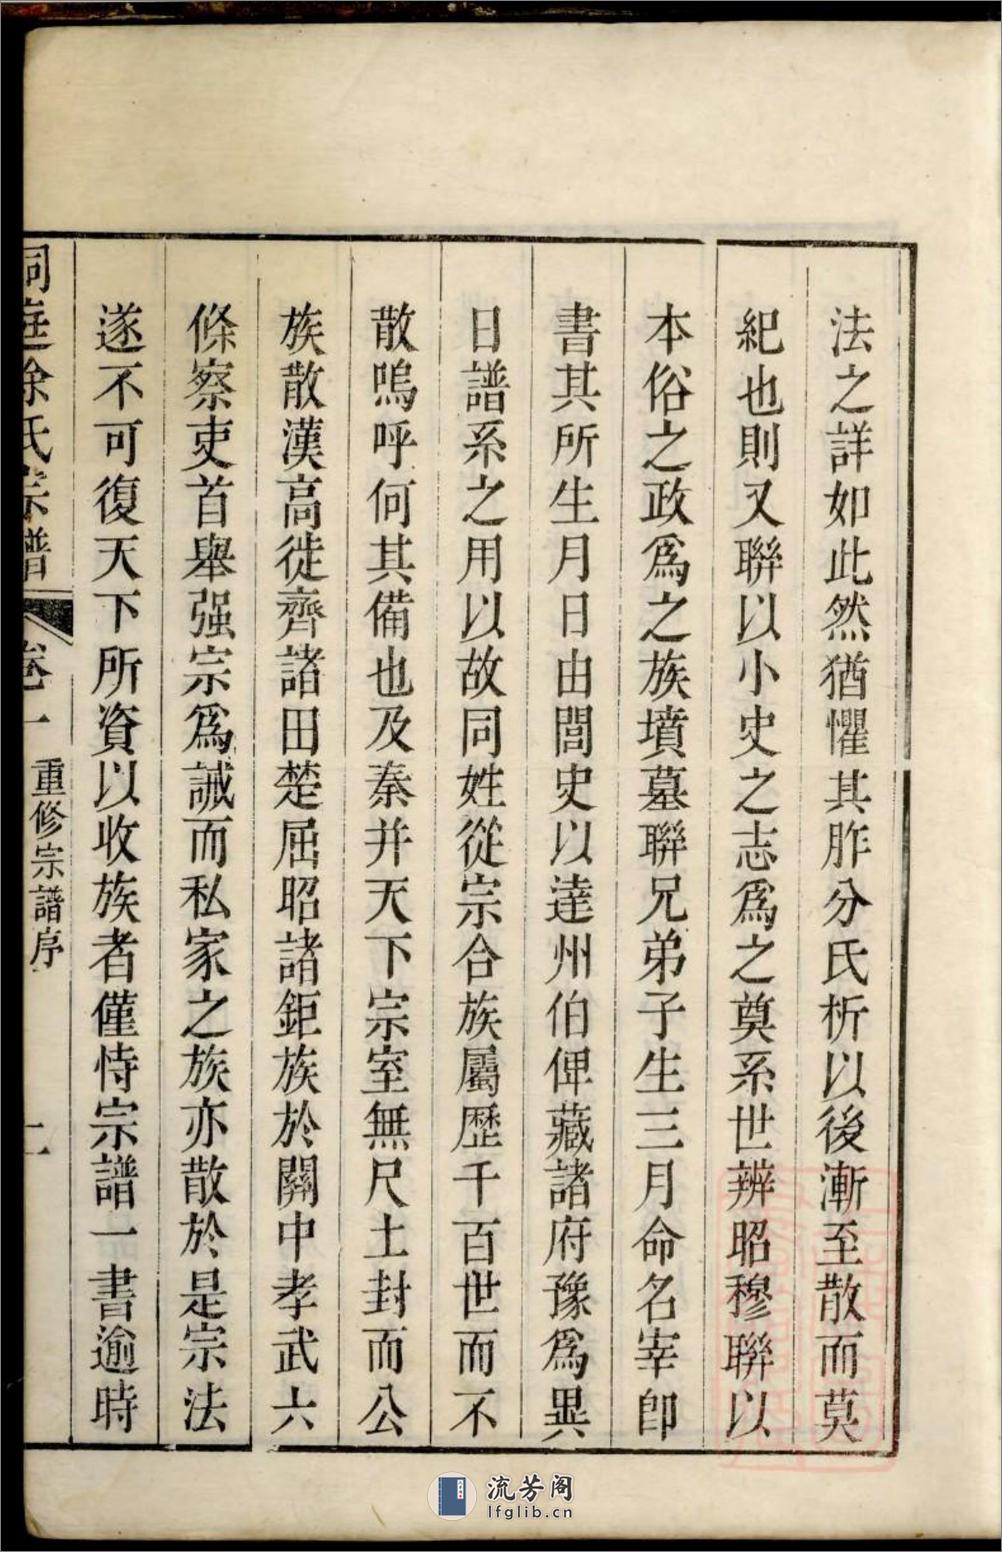 法之詳如此然猶懼其胙分氏析以後漸至散而莫
紀也則又聯以小史之志爲之奠系世辨昭穆聯以
本俗之政爲之族墳墓聯兄弟子生三月命名宰卽
書其所生月日由閭史以達州伯俾藏諸府豫爲異
日譜系之用以故同姓從宗合族屬歷千百世而不
散嗚呼何其備也及秦并天下宗室無尺土封而公
族散漢高徙齊諸田楚屈昭諸鉅族於關中孝武六
條察吏首舉强宗爲誡而私家之族亦散於是宗法
遂不可復天下所資以收族者僅恃宗譜一書逾時
洞庭徐氏宗譜 卷一 重修宗譜序
流芳阁
lfglib.cn